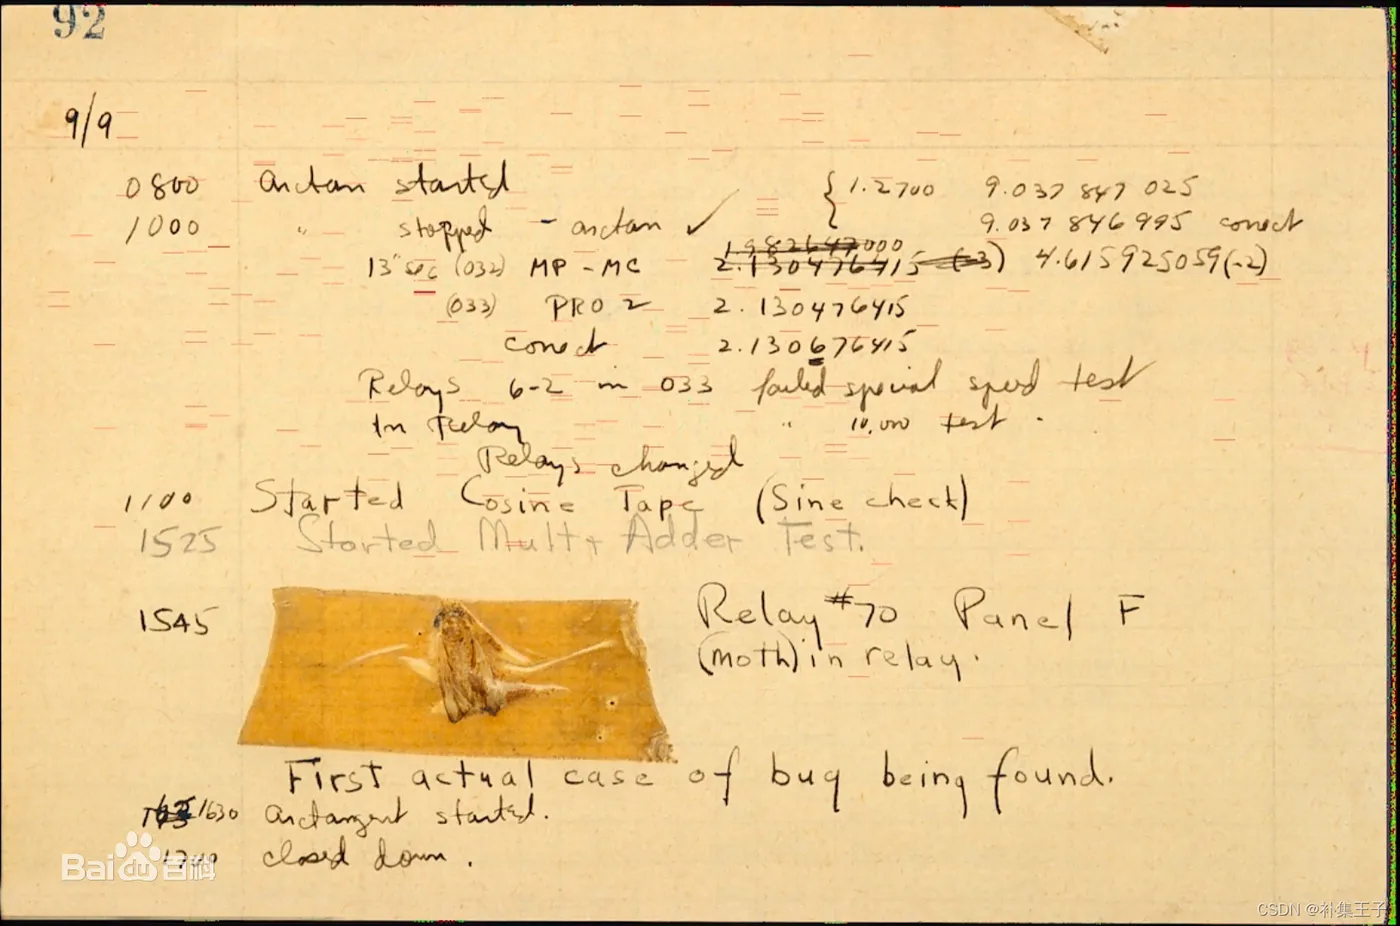 92
9/9
0800 arctan started { 1.2700 9.037 847 025
1000 " stopped - arctan ✓ 9.037 846 995 correct
13" sec (032) MP - MC 1.982647000 2.130476415 (-3) 4.615925059(-2)
(033) PRO 2 2.130476415
correct 2.130676415
Relays 6-2 in 033 failed special speed test
In Relay " 10,000 test .
Relays changed
1100 Started Cosine Tape (Sine check)
1525 Started Mult + Adder Test.
1545 Relay #70 Panel F
(moth) in relay.
First actual case of bug being found.
1630 arctangent started.
1700 closed down.
Bai 百科
CSDN @补集王子